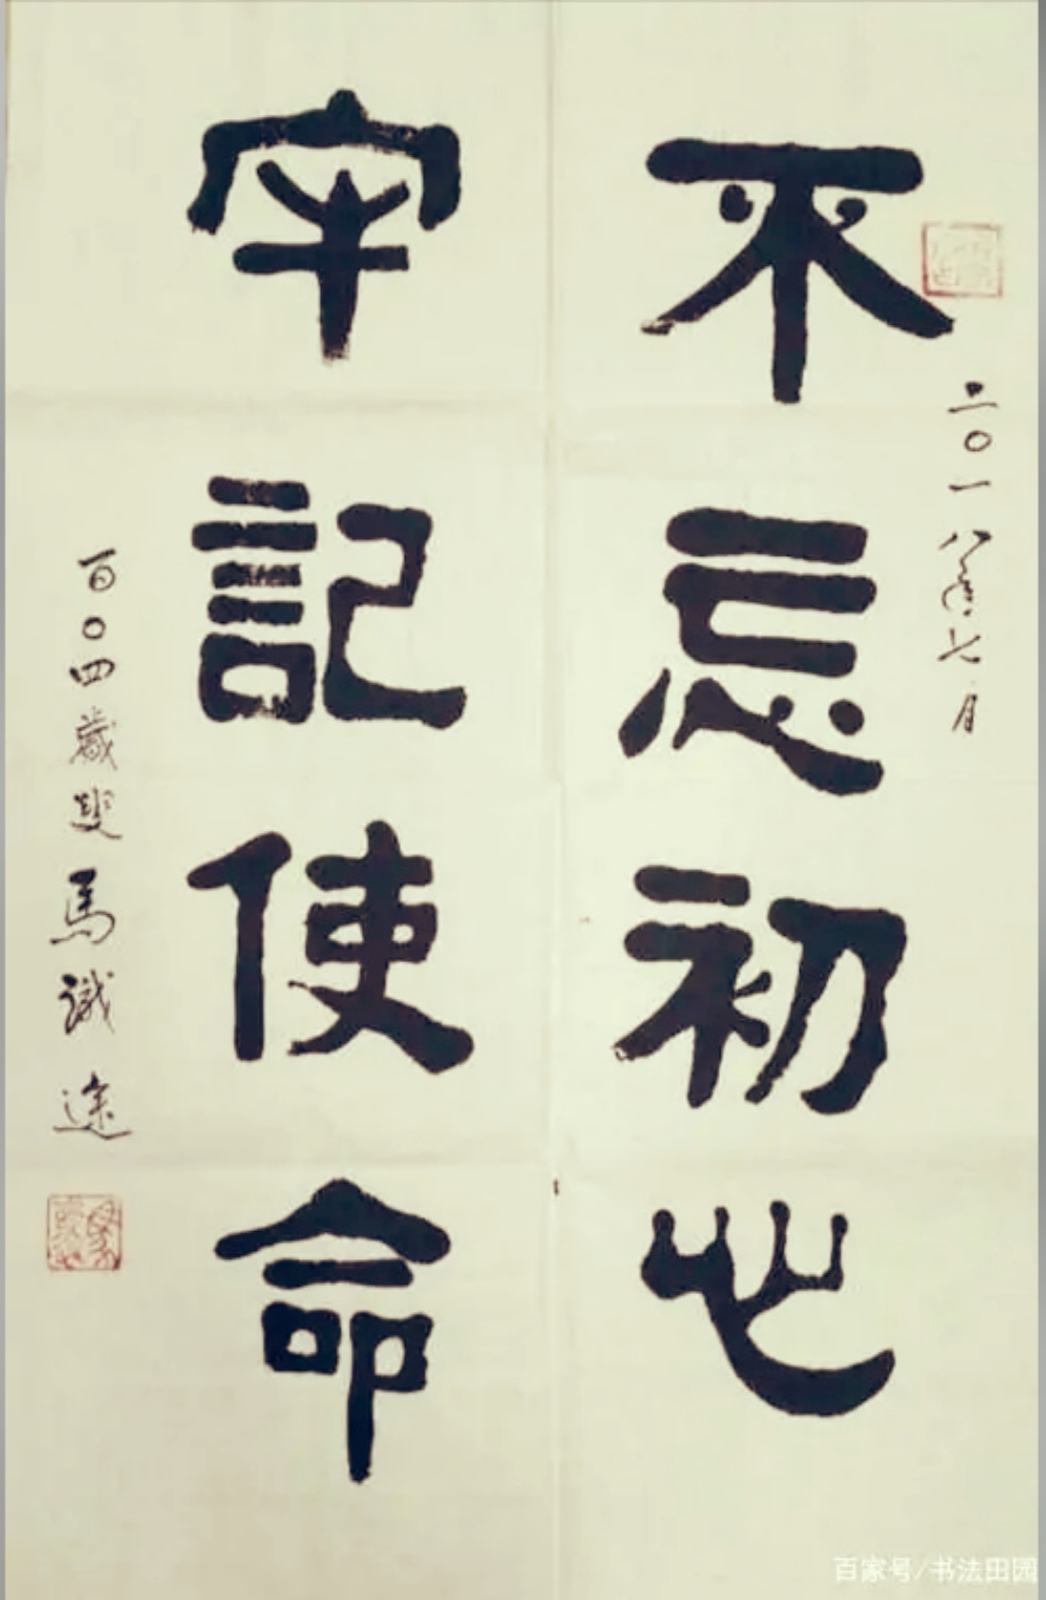 二〇一八年七月
不忘初心
牢記使命
百〇四歲叟馬識途
百家号/书法田园